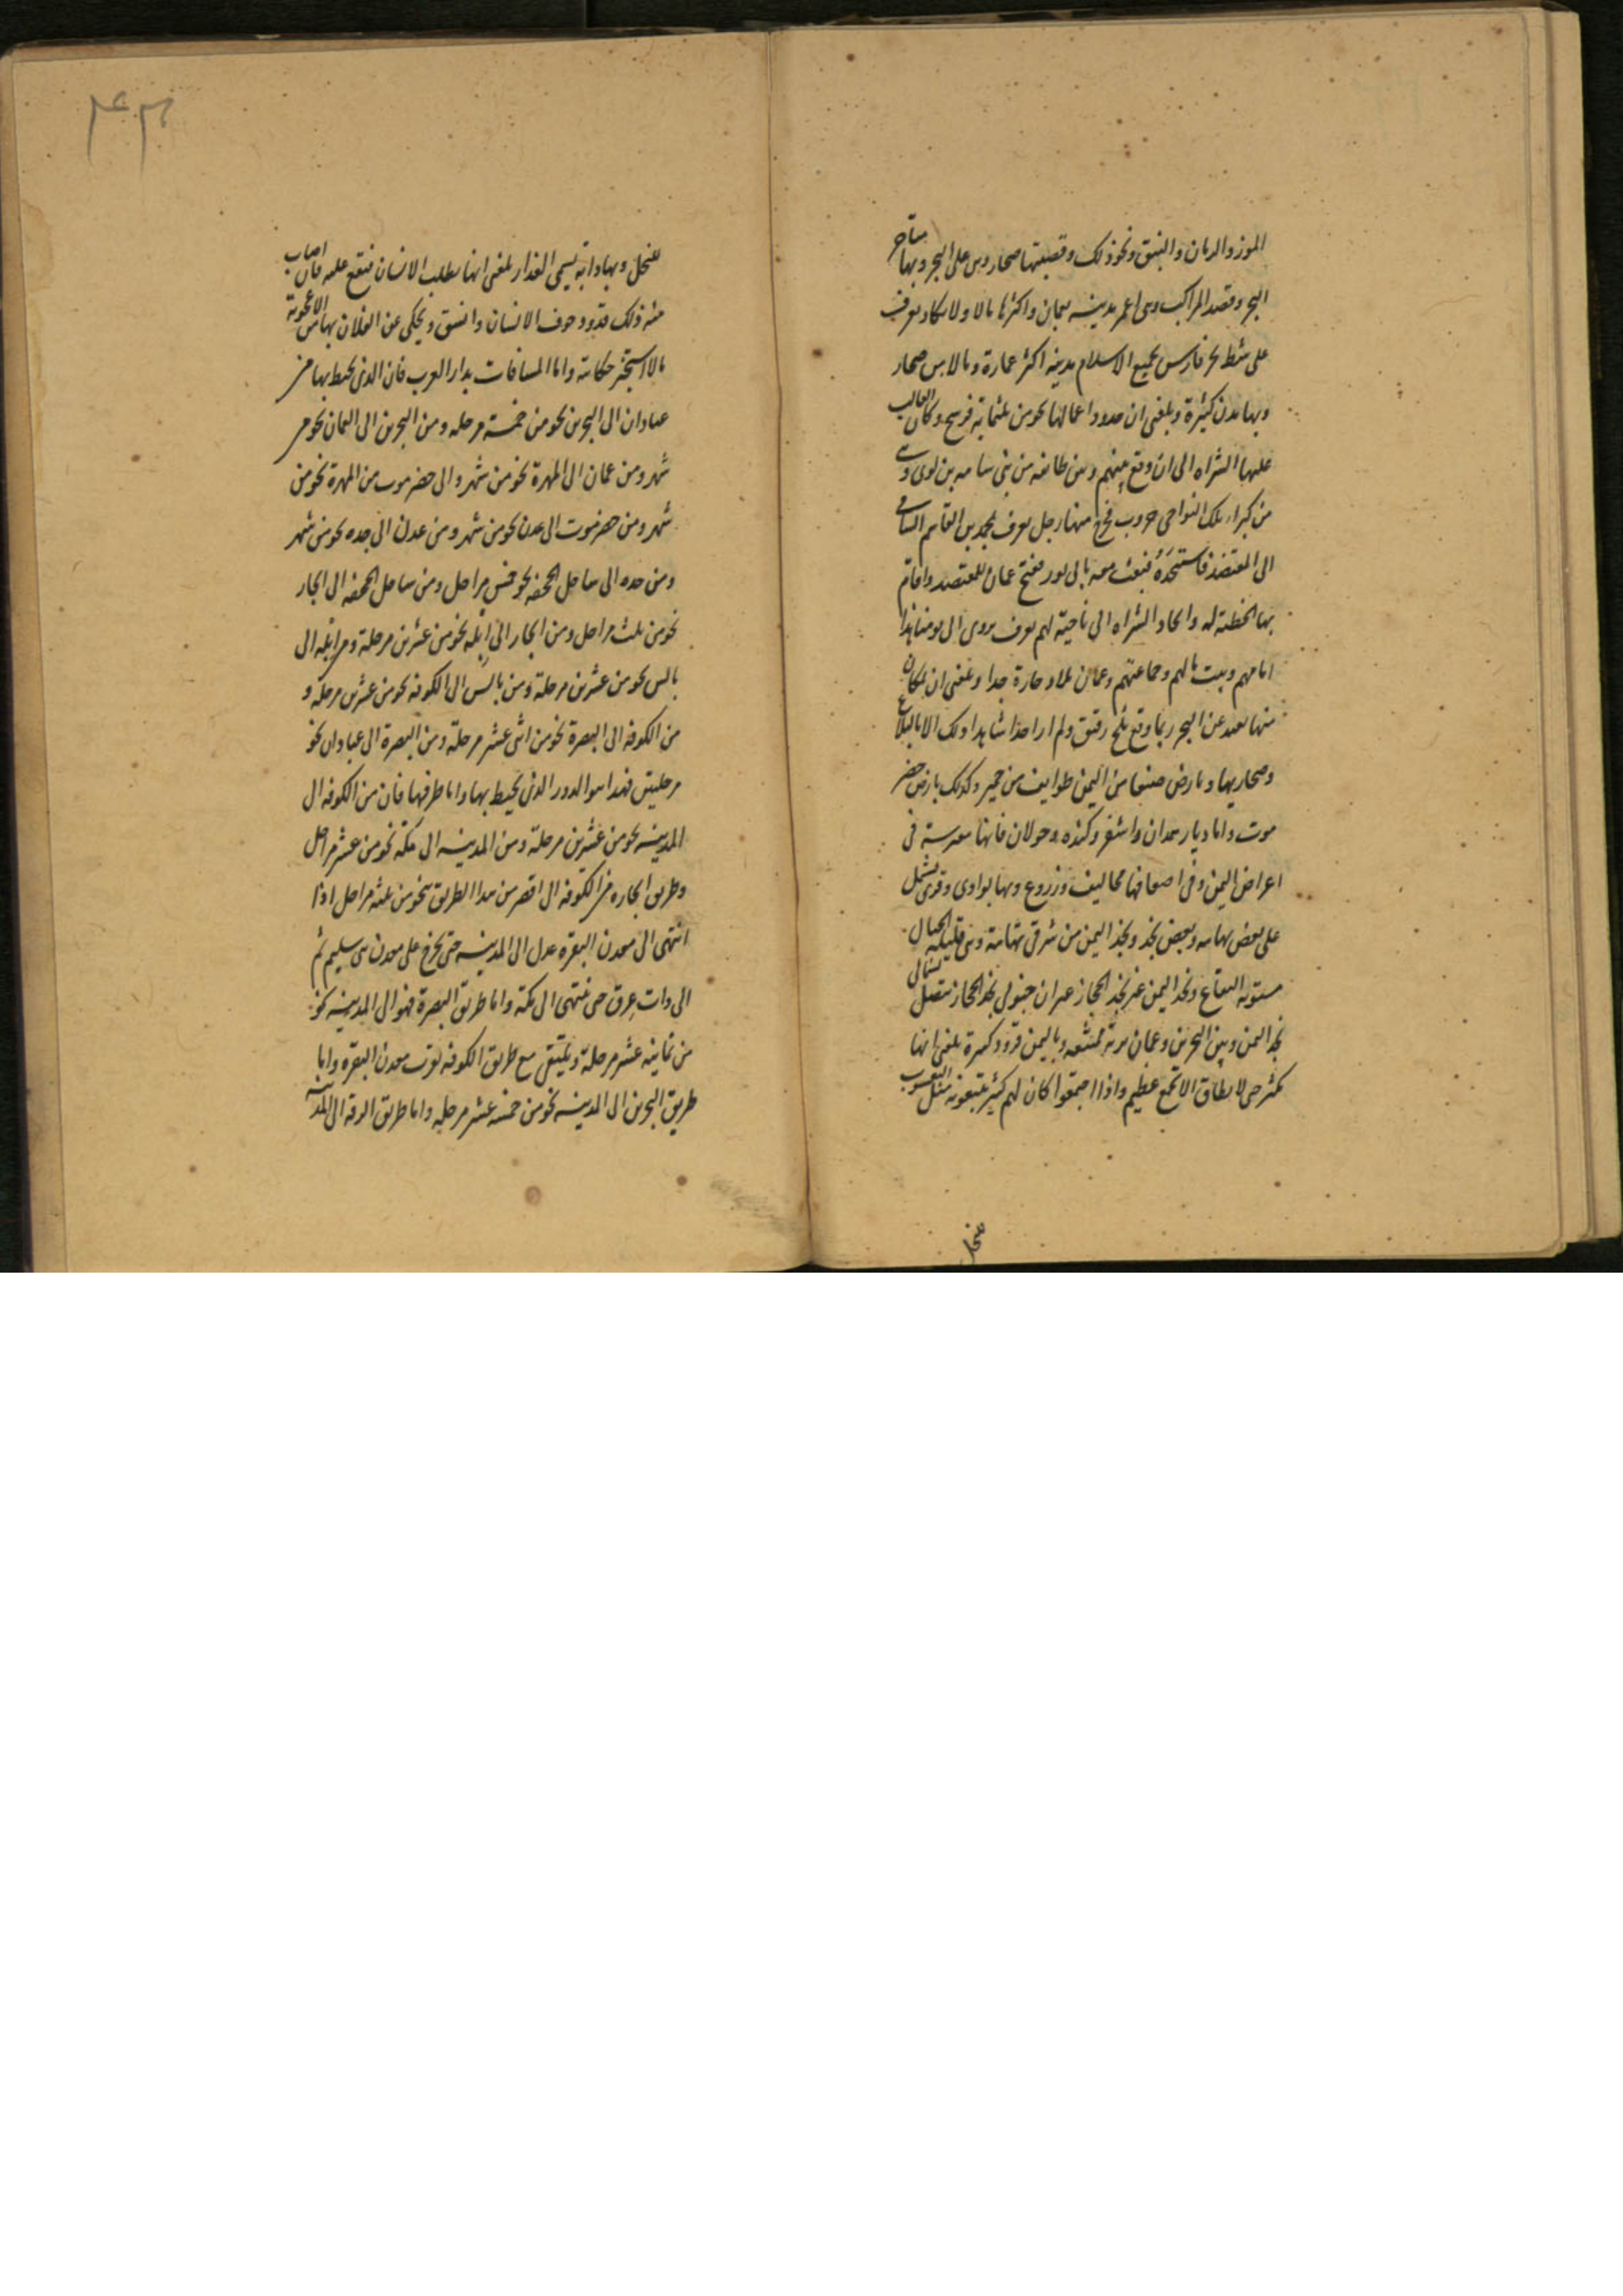 الموز والرمان والنبق ونحو ذلك وقصبتها صحار وهى على البحر وبها متاجر
البحر وقصد المراكب وهى اعمر مدينه بعمان واكثرها مالا ولا تكاد تعرف
على شط بحر فارس بجميع الاسلام مدينه اكثر عمارة ومالا من صحار
وبها مدن كثيرة وبلغنى ان حدود اعمالها نحو من ثلثماية فرسخ وكان الغالب
عليها الشراه الى ان وقع بينهم وبين طائفه من بنى سامه بن لوى وهى
من كبراء تلك النواحى حروب فخرج منها رجل يعرف بمحمد بن القاسم السامى
الى المعتضد فاستنجده فبعث معه بابى ثور ففتح عمان للمعتضد واقام
بها الخطبة له وانحاز الشراه الى ناحية لهم يعرف بنزوى الى يومنا هذا
امامهم وبيت مالهم وجماعتهم وعمان بلاد حارة جدا وبلغنى ان بمكان
منها بعيد عن البحر ربما وقع ثلج رقيق ولم ار احدا شاهد ذلك الا بالبلاغ
وبارض صنعا من اليمن طوايف من حمير وكذلك بارض حضر
موت واما ديار همدان واشعر وكنده وخولان فانها مفترشة فى
اعراض اليمن وفى اضعافها مخاليف وزروع وبها بوادى وقرى تشتمل
على بعض تهامه وبعض نجد ونجد اليمن من شرقى تهامة وهى قليله الجبال
مستويه البقاع ونجد اليمن غير نجد الحجاز غير ان جنوبى نجد الحجاز تتصل بشمالى
نجد اليمن وبين البحرين وعمان بريه ممتنعه وباليمن قرود كثيرة بلغنى انها
تكثر حتى لا يطاق الا بجمع عظيم واذا اجتمعوا كان لهم كبير يتبعونه مثل اليعسوب
للنحل
للنحل وبها دابه تسمى الغدار بلغنى انها تطلب الانسان فتقع عليه فان اصاب
منه ذلك تدود جوف الانسان وانشق ويحكى عن الغيلان بها من الاعجوبة
مالا استجيز حكايته واما المسافات بدار العرب فان الذى يحيط بها من
عبادان الى البحرين نحو من خمسة عشر مرحله ومن البحرين الى العمان نحو من
شهر ومن عمان الى المهرة نحو من شهر والى حضرموت من المهرة نحو من
شهر ومن حضرموت الى عدن نحو من شهر ومن عدن الى جده نحو من شهر
ومن جده الى ساحل الجحفه نحو خمس مراحل ومن ساحل الجحفه الى الجار
نحو من ثلث مراحل ومن الجار الى ايله نحو من عشرين مرحلة ومن ايله الى
بالس نحو من عشرين مرحلة ومن بالس الى الكوفه نحو من عشرين مرحلة و
من الكوفه الى البصرة نحو من اثنى عشر مرحلة ومن البصرة الى عبادان نحو
مرحلتين فهذا هو الدور الذى يحيط بها واما طرقها فان من الكوفه الى
المدينه نحو من عشرين مرحلة ومن المدينه الى مكة نحو من عشر مراحل
وطريق الجاده من الكوفه الى اقصر من هذا الطريق بنحو من ثلثه مراحل اذا
انتهى الى معدن النقره عدل الى المدينه حتى يخرج على معدن بنى سليم ثم
الى ذات عرق حتى ينتهى الى مكة واما طريق البصرة فهو الى المدينه نحو
من ثمانيه عشر مرحلة ويلتقى مع طريق الكوفه بقرب معدن النقره واما
طريق البحرين الى المدينه نحو من خمسه عشر مرحله واما طريق الرقه الى المدينه